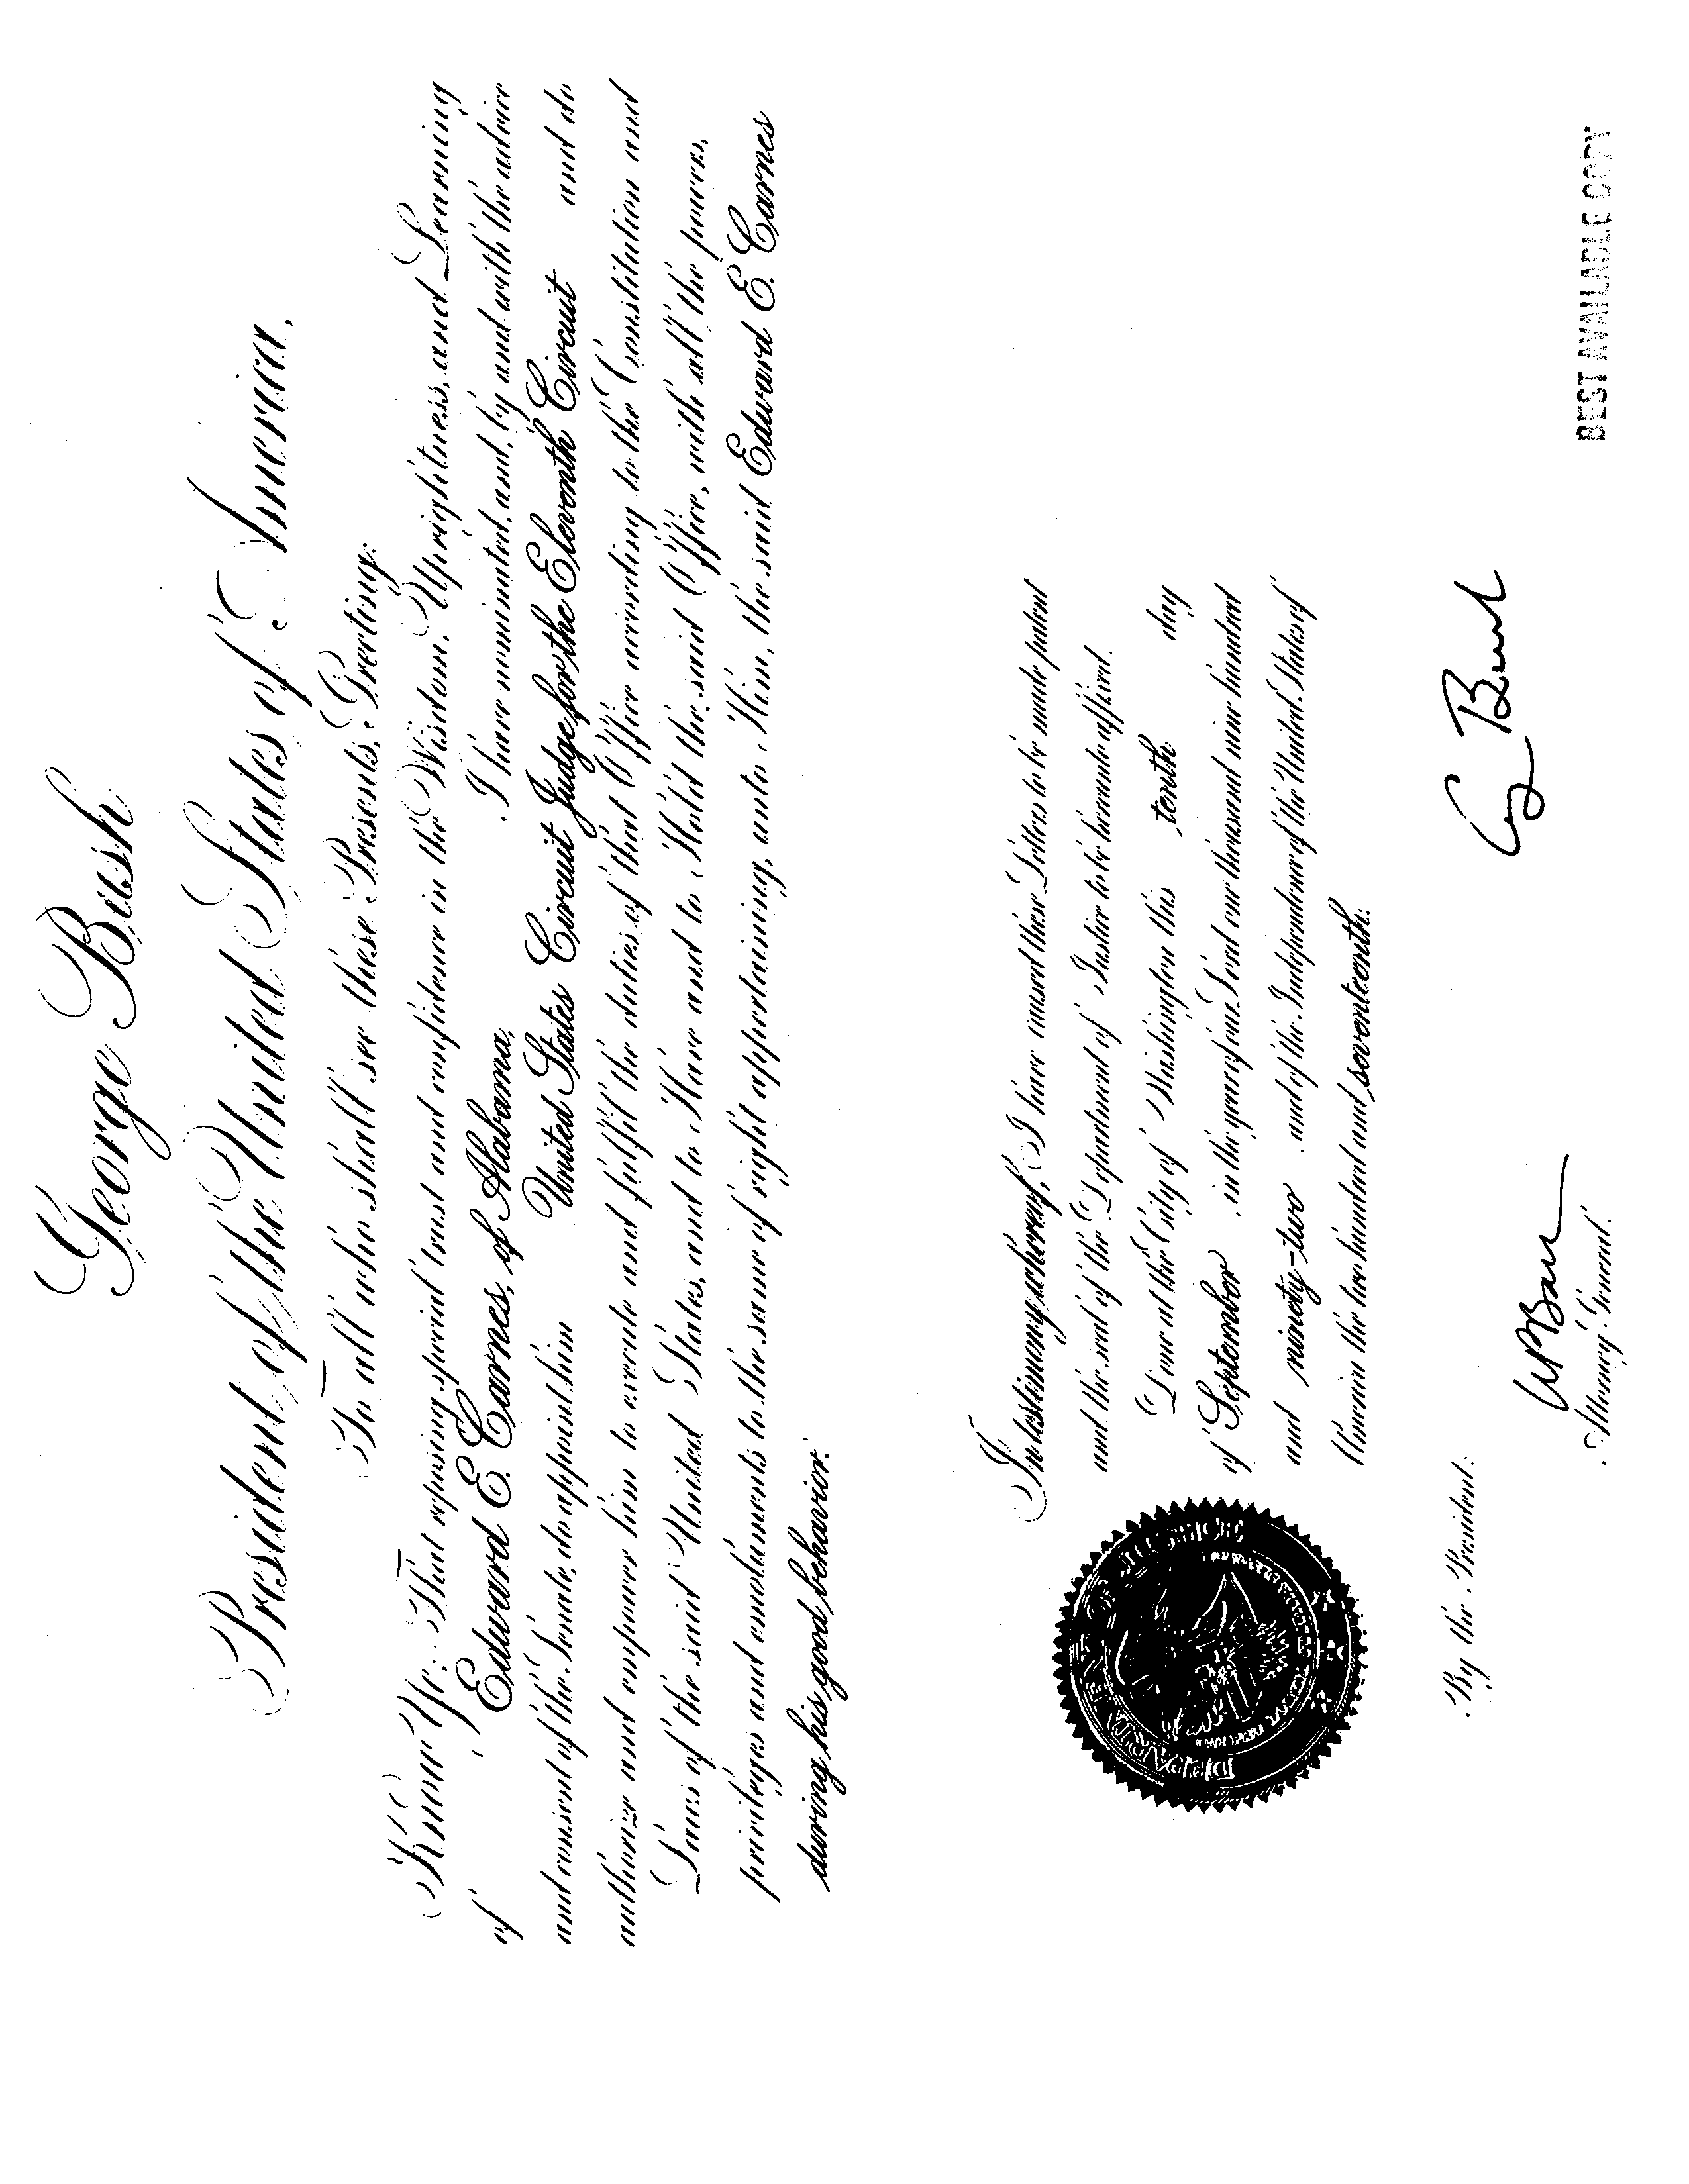 George Bush
President of the United States of America,
To all who shall see these Presents, Greeting:
Know Ye: That reposing special trust and confidence in the Wisdom, Uprightness, and Learning
of Edward E. Carnes, of Alabama, I have nominated, and, by and with the advice
and consent of the Senate, do appoint him United States Circuit Judge for the Eleventh Circuit and do
authorize and empower him to execute and fulfil the duties of that Office according to the Constitution and
Laws of the said United States, and to Have and to Hold the said Office, with all the powers,
privileges and emoluments to the same of right appertaining, unto Him, the said Edward E. Carnes
during his good behavior.
In testimony whereof, I have caused these Letters to be made patent
and the seal of the Department of Justice to be hereunto affixed.
Done at the City of Washington this tenth day
of September in the year of our Lord one thousand nine hundred
and ninety-two and of the Independence of the United States of
America the two hundred and seventeenth.
DEPARTMENT OF JUSTICE
By the President:
G Bush
WPBarr
Attorney General.
BEST AVAILABLE COPY